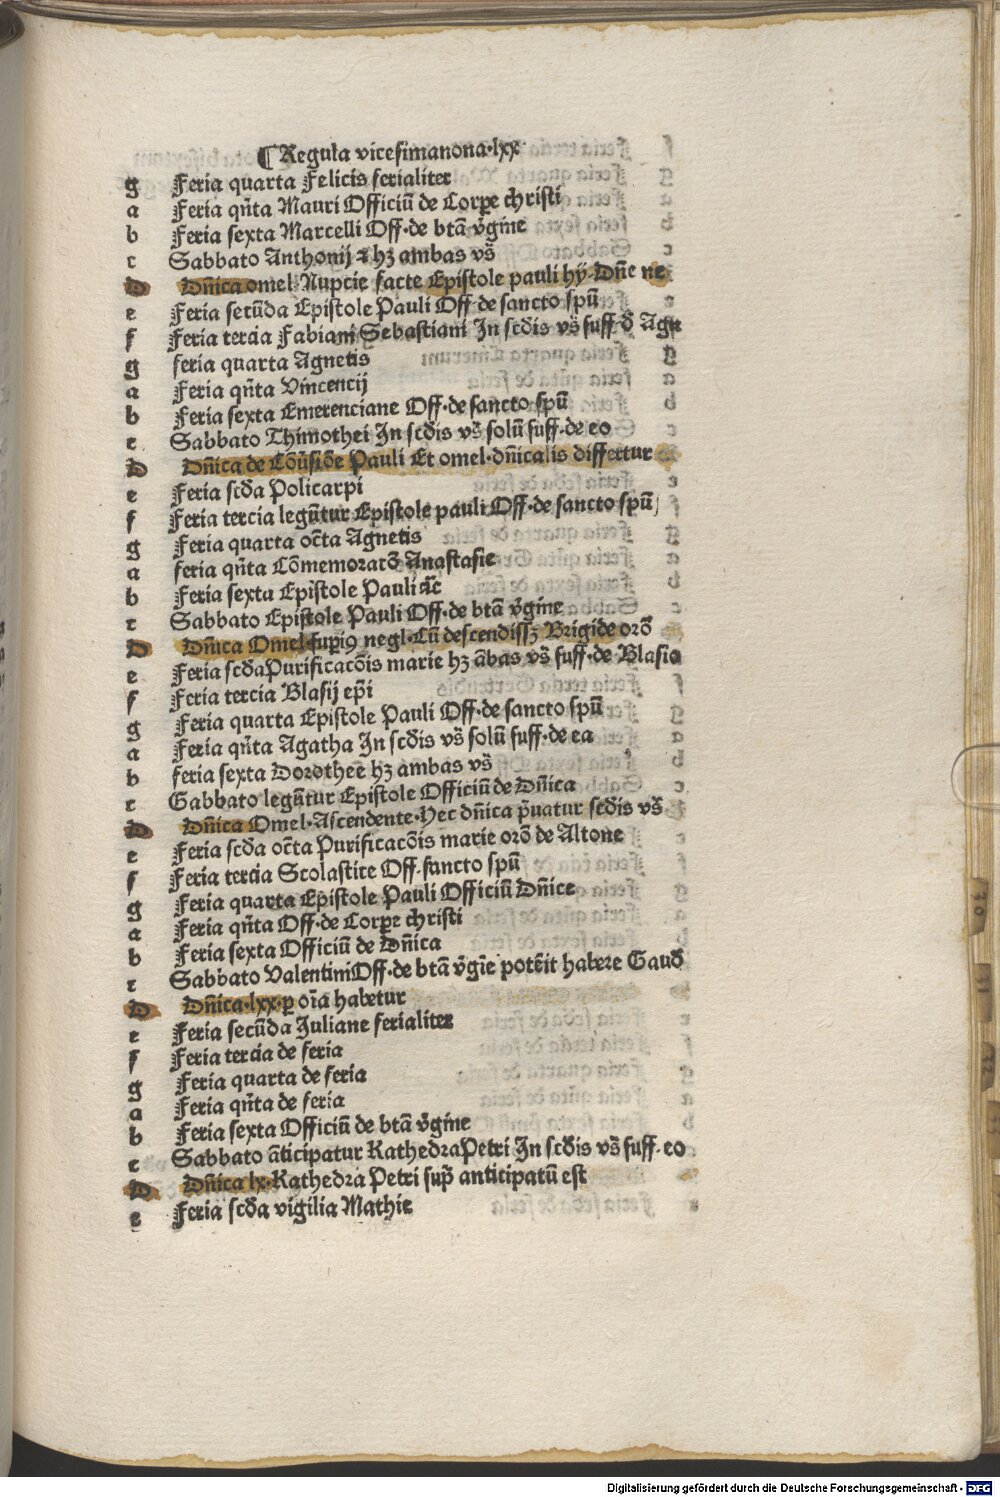 ¶ Regula vicesimanona·lxx
g Feria quarta Felicis ferialiter
a Feria qñta Mauri Officiū de Corpe christi
b Feria sexta Marcelli Off·de btā v̄gine
c Sabbato Anthonij ⁊ hꝫ ambas vs̄
D Dñica omel·Nupcie facte Epistole pauli hÿ·Dñe ne
e Feria secūda Epistole Pauli Off·de sancto spū
f Feria tercia Fabiani Sebastiani In scd̄is vs̄ suff·d̄ Agn
g feria quarta Agnetis
a Feria qñta Vincencij
b Feria sexta Emerenciane Off·de sancto spū
c Sabbato Thimothei In scd̄is vs̄ solū suff·de eo
D Dñica de Cōūsiōe Pauli Et omel·dñicalis differtur
e Feria scd̄a Policarpi
f Feria tercia legūtur Epistole pauli Off·de sancto spū
g Feria quarta oc̄ta Agnetis
a feria qñta Cōmemoratō Anastasie
b Feria sexta Epistole Pauli ⁊c̄
c Sabbato Epistole Pauli Off·de btā v̄gine
D Dñica Omel·supiꝰ negl·Cū descendissꝫ Brigide orō
e Feria scd̄a Purificacōis marie hꝫ ābas vs̄ suff·de Blasio
f Feria tercia Blasij ep̄i
g Feria quarta Epistole Pauli Off·de sancto spū
a Feria qñta Agatha In scd̄is vs̄ solū suff·de ea
b feria sexta Dorothee hꝫ ambas vs̄
c Sabbato legūtur Epistole Officiū de Dñica
D Dñica Omel·Ascendente·Hec dñica p̄uatur scd̄is vs̄
e Feria scd̄a oc̄ta Purificacōis marie orō de Altone
f Feria tercia Scolastice Off·sancto spū
g Feria quarta Epistole Pauli Officiū Dñice
a Feria qñta Off·de Corpe christi
b Feria sexta Officiū de Dñica
c Sabbato Valentini Off·de btā v̄gīe potēit habere Gaud̄
D Dñica·lxx·ꝑ oīa habetur
e Feria secūda Juliane ferialiter
f Feria tercia de feria
g Feria quarta de feria
a Feria qñta de feria
b Feria sexta Officiū de btā v̄gine
c Sabbato āticipatur Kathedra Petri In scd̄is vs̄ suff·eo
D Dñica lx·Kathedra Petri sup̄ anticipatū est
e Feria scd̄a vigilia Mathie
Digitalisierung gefördert durch die Deutsche Forschungsgemeinschaft - DFG